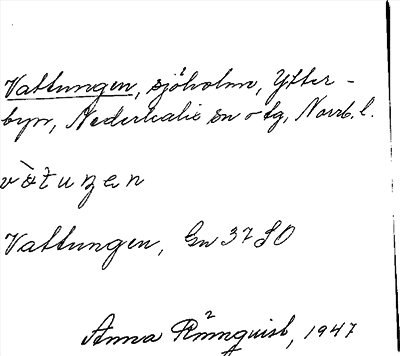 Vattungen, sjöholm, Ytter-
byn, Nederkalix sn o tg, Norrb. l.
Vattungen, Gen 37 SO
Anna Rönnquist, 1947